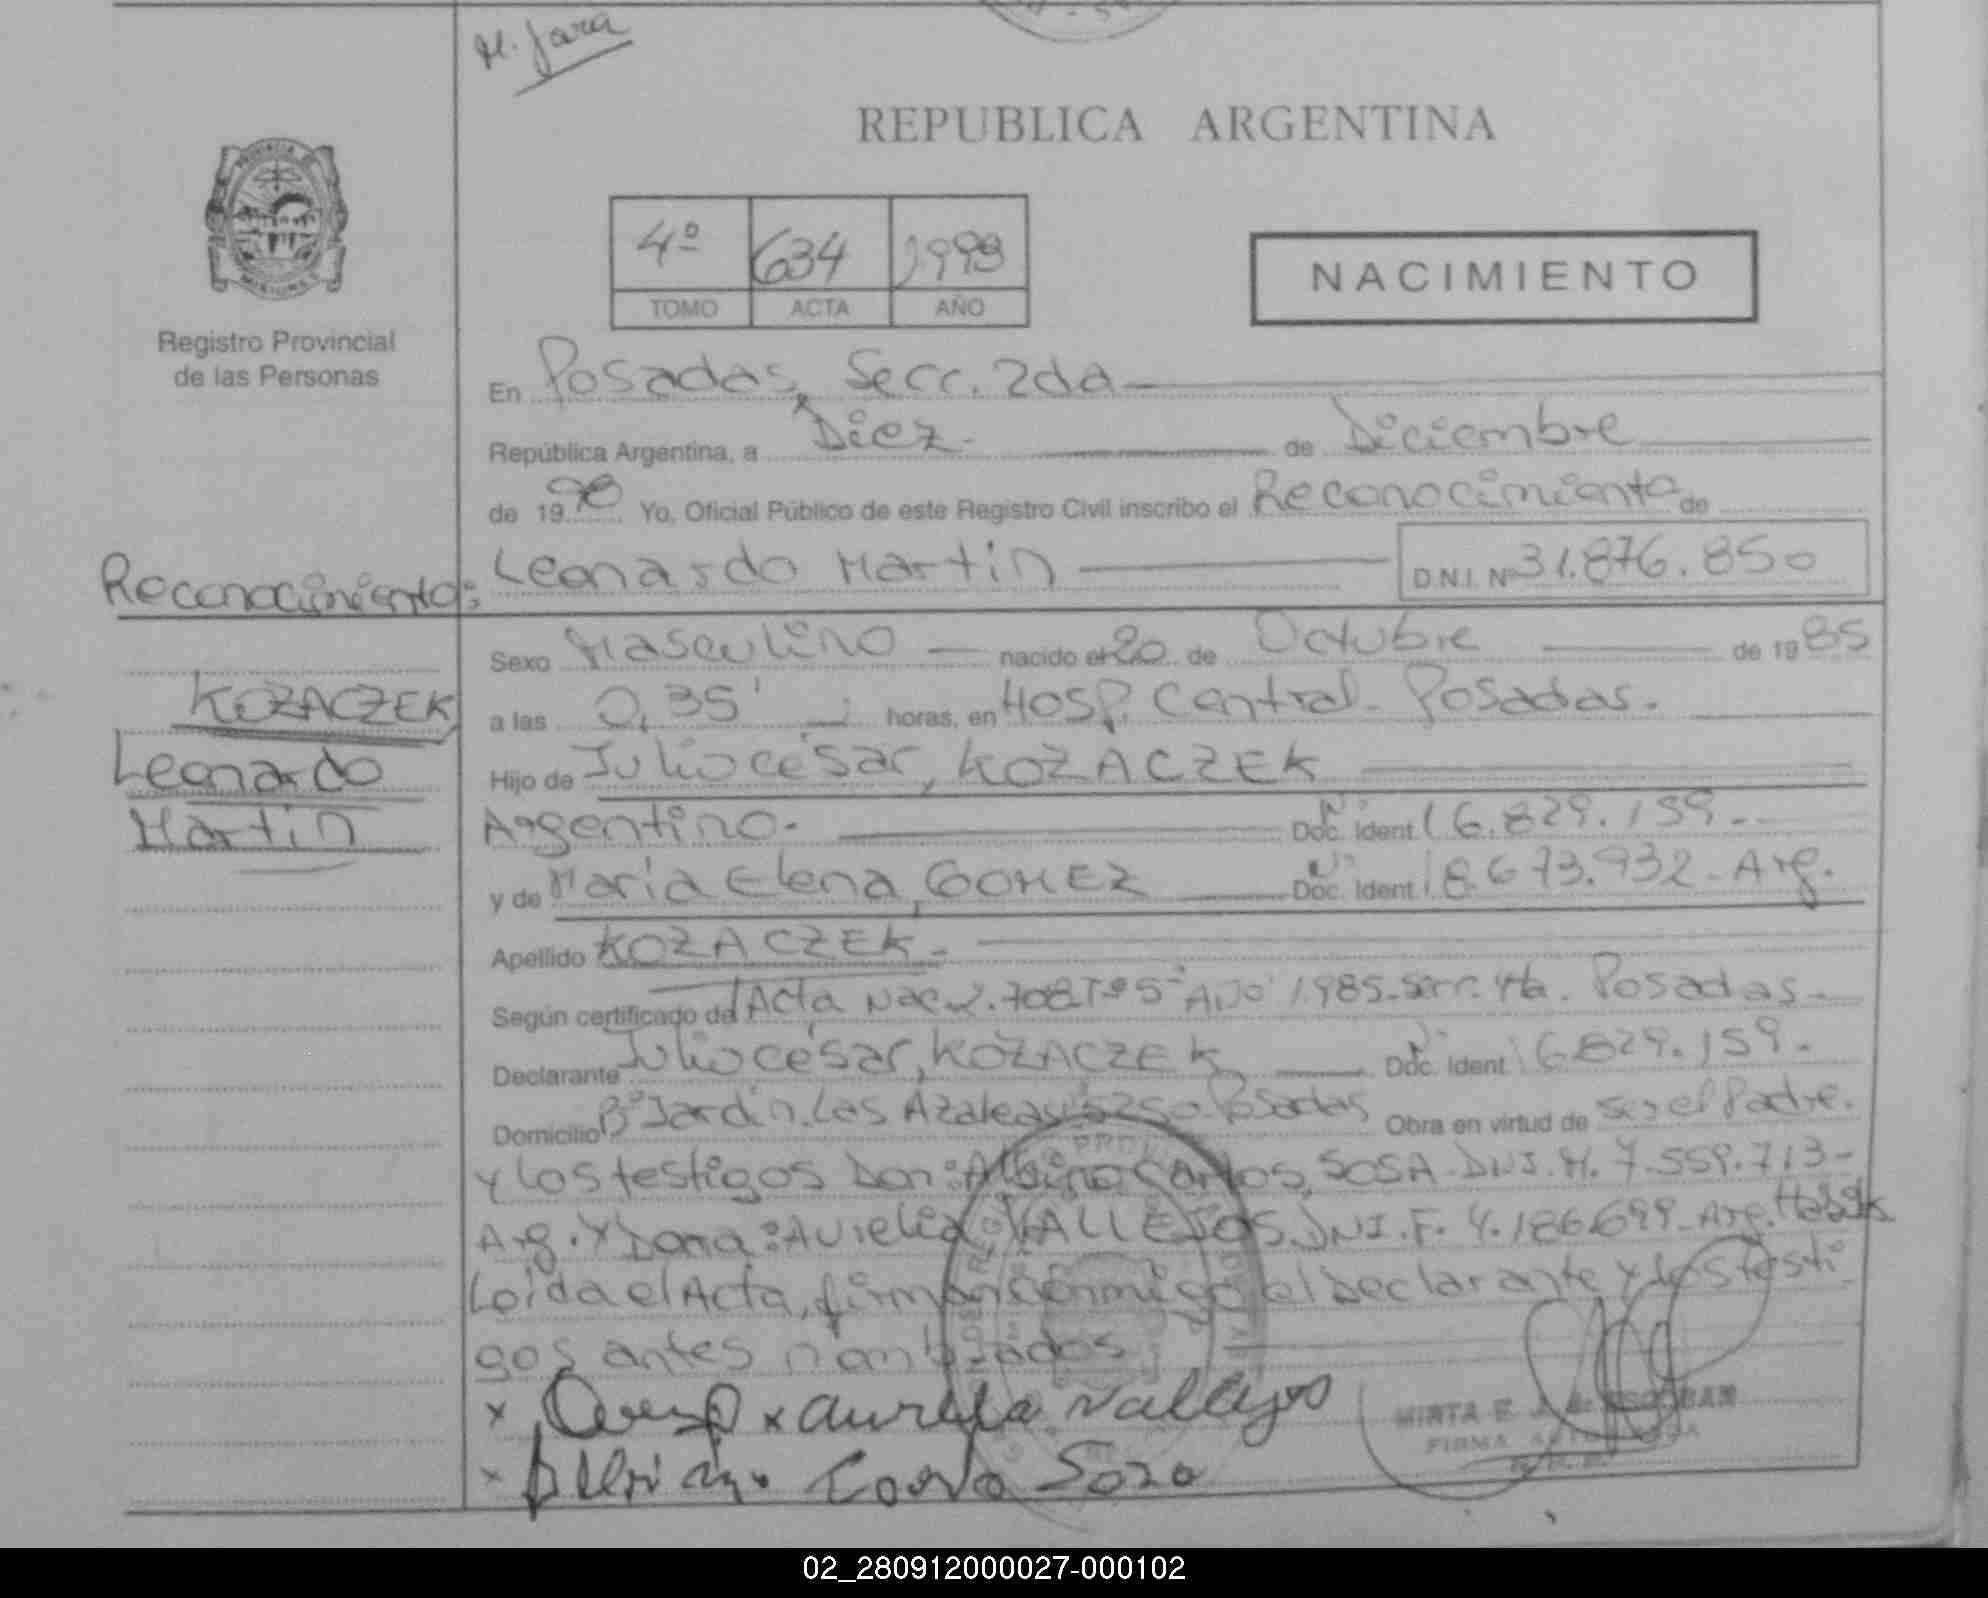 M. Jara
REPUBLICA ARGENTINA
PROVINCIA DE
MISIONES
Registro Provincial
de las Personas
4º 634 1998
TOMO ACTA AÑO
NACIMIENTO
En Posadas, Secc. 2da
República Argentina, a Diez. de Diciembre
de 1998 Yo, Oficial Público de este Registro Civil inscribo el Reconocimiento de
Reconocimiento: Leonardo Martin D.N.I. Nº 31.876.850
Sexo Masculino nacido el 20 de Octubre de 1985
KOZACZEK, a las 0,35' horas, en Hosp. Central - Posadas.
Leonardo Hijo de Julio césar, KOZACZEK
Martin Argentino. Nº Doc. Ident. 16.829.159.-
y de María Elena, GOMEZ Nº Doc. Ident. 18.673.932 - Arg.
Apellido KOZACZEK.-
Según certificado de Acta Nac. 2.708. Tº 5º Año 1.985. Secc. 4ta. Posadas.
Declarante Julio césar, KOZACZEK Nº Doc. Ident. 16.829.159.
Domicilio Bº Jardin. Las Azaleas 5250. Posadas Obra en virtud de ser el Padre.
y los testigos Don: Albino Carlos, SOSA. DNI. M. 7.559.713-
Arg. Y Dona: Aurelia VALLEJOS. DNI. F. 4.186.699. Arg. Habiles
Leida el Acta, firman conmigo el Declarante y los testi-
gos antes nombrados
x x Aurelia Vallejos
MIRTA E. DE ESCOBAR
FIRMA AUTORIZADA
x Albino Sosa
02_280912000027-000102